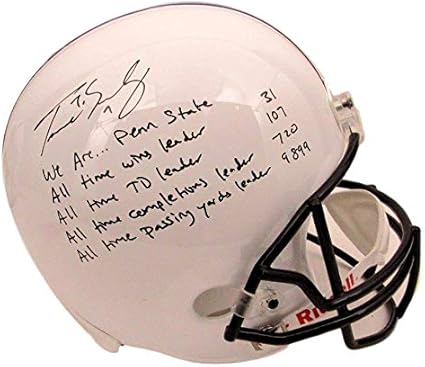 We Are... Penn State
All time wins leader 31
All time TD leader 107
All time completions leader 720
All time Passing yards leader 9899
Riddell